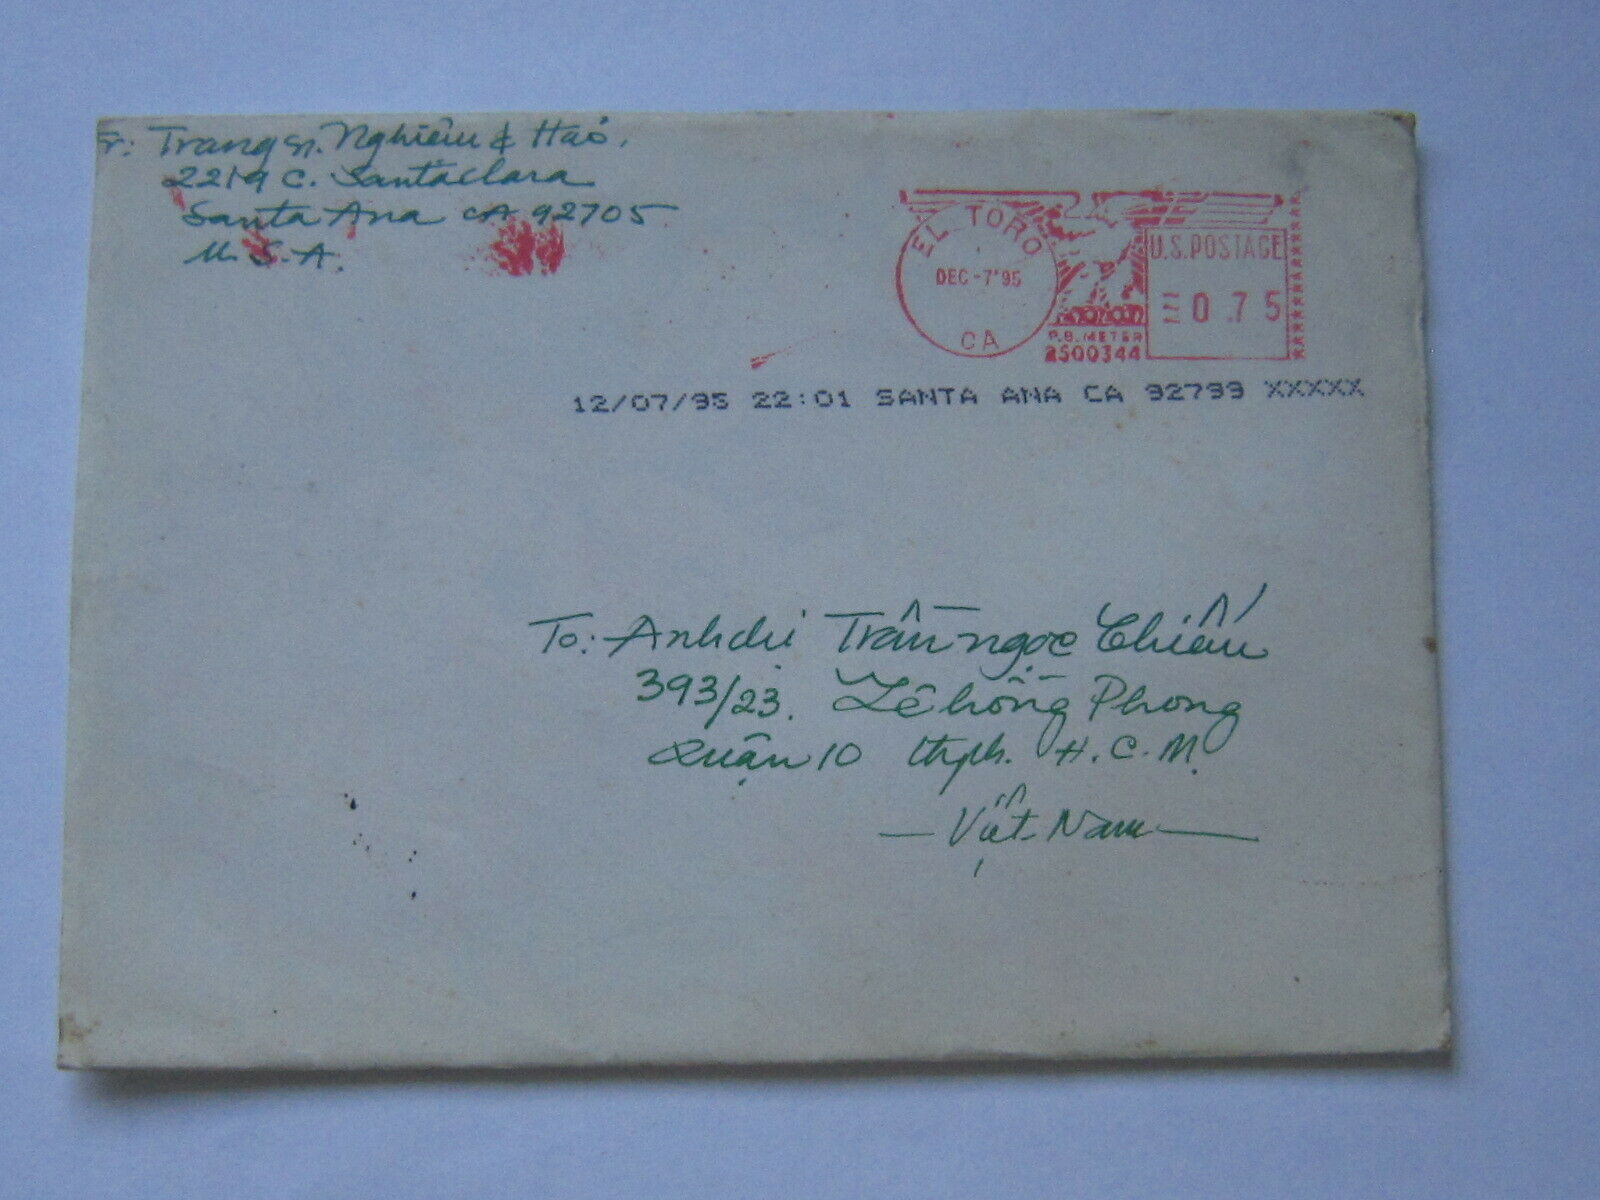 Fr: Trang n. Nghiêm & Hảo.
2219 C. Santaclara
Santa Ana CA 92705
U.S.A.
EL TORO
DEC -7'95
CA
U.S. POSTAGE
0.75
P.B. METER
2500344
12/07/95 22:01 SANTA ANA CA 92799 XXXXX
To: Anhchị Trần ngọc Chiến
393/23. Lê hồng Phong
Quận 10 thph. H.C.M.
— Việt Nam —